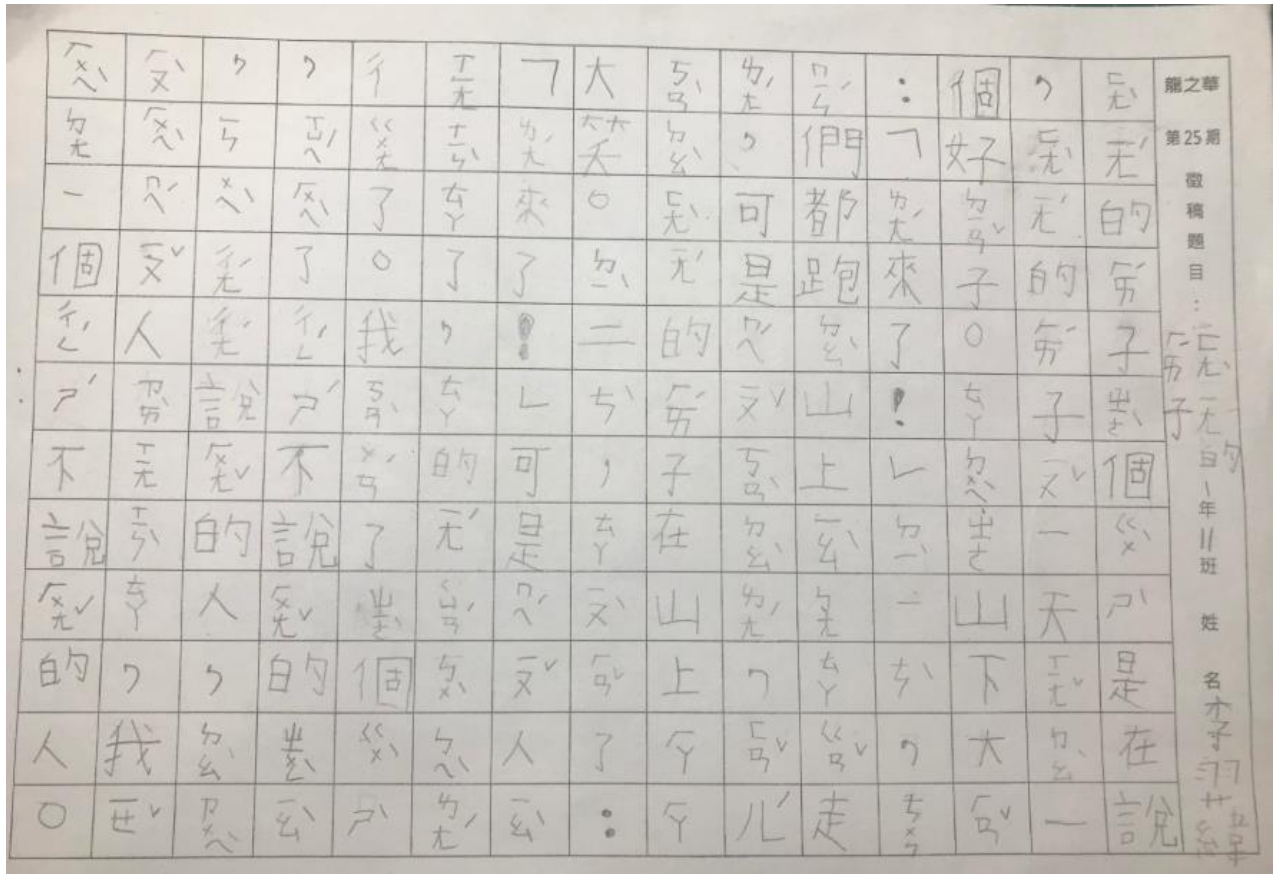 龍之華 第25期 徵稿題目：ㄈㄤˋㄧㄤˊ的ㄏㄞˊ子 1年11班 姓名李羽
ㄈㄤˋㄧㄤˊ的ㄏㄞˊ子ㄓㄜˋ個ㄍㄨˋㄕˋ是在說
，ㄈㄤˋㄧㄤˊ的ㄏㄞˊ子ㄧㄡˇ一天ㄒㄧㄤˇㄉㄠˋ一
個好ㄉㄧㄢˇ子。ㄊㄚㄉㄨㄟˋㄓㄜ山下大ㄏㄢˇ
：「ㄌㄤˊ來了！」ㄉㄧˋ一ㄘˋ，ㄘㄨㄣ
ㄇㄧㄣˊ們都跑ㄉㄠˋ山上ㄧㄠˋㄅㄤㄊㄚㄍㄢˇ走
ㄌㄤˊ，可是ㄇㄟˊㄧㄡˇㄎㄢˋㄉㄠˋㄌㄤˊ，ㄈㄢˇㄦˊ
ㄎㄢˋㄉㄠˋㄈㄤˋㄧㄤˊ的ㄏㄞˊ子在山上ㄏㄚㄏㄚ
大笑。ㄉㄧˋ二ㄘˋ，ㄊㄚㄧㄡˋㄏㄢˇ了：
「ㄌㄤˊ來了！」可是ㄇㄟˊㄧㄡˇ人ㄧㄠˋ
ㄒㄧㄤㄒㄧㄣˋㄊㄚ了，ㄊㄚ的ㄧㄤˊㄑㄩㄢˊㄅㄨˋㄅㄟˋㄌㄤˊ
，ㄔㄍㄨㄤ了。我ㄎㄢˋㄨㄢˊ了ㄓㄜˋ個ㄍㄨˋㄕˋ
，ㄒㄩㄝˊㄏㄨㄟˋ了ㄔㄥˊㄕˊ不說ㄏㄨㄤˇ的ㄧㄠˋ
，ㄧㄣㄨㄟˋㄔㄤˊㄔㄤˊ說ㄏㄨㄤˇ的人，ㄉㄠˋㄗㄨㄟˋ
ㄏㄡˋㄏㄨㄟˋㄇㄟˊㄧㄡˇ人ㄗㄞˋㄒㄧㄤㄒㄧㄣˋㄊㄚ，我ㄧㄝˇ
ㄏㄨㄟˋㄉㄤ一個ㄔㄥˊㄕˊ不說ㄏㄨㄤˇ的人。